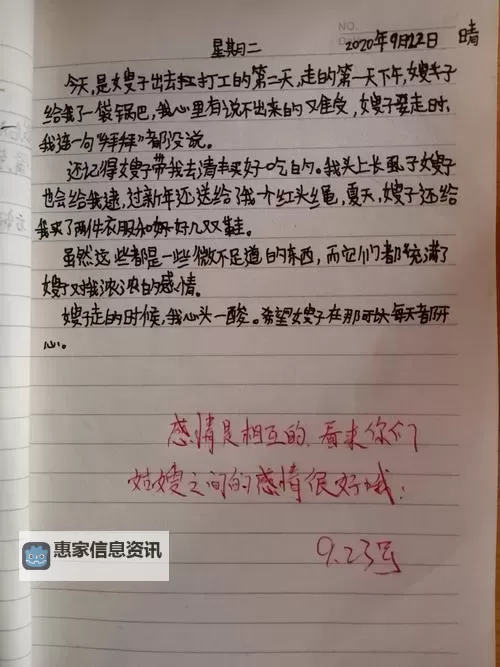 NO.
星期二 2020年9月22日 晴
今天,是嫂子出去打工的第二天,走的第一天下午,嫂子
给我了一袋锅巴,我心里有说不出来的难受,嫂子要走时,
我连一句“拜拜”都没说。
还记得嫂子带我去清丰买好吃的。我头上长虱子嫂子
也会给我逮,过新年还送给我一个红头绳,夏天,嫂子还给
我买了两件衣服和好几双鞋。
虽然这些都是一些微不足道的东西,而它们都充满了
嫂子对我浓浓的感情。
嫂子走的时候,我心头一酸。希望嫂子在那可以每天都开
心。
感情是相互的,看来你们
姑嫂之间的感情很好哦!
9.23号
惠家信息资讯